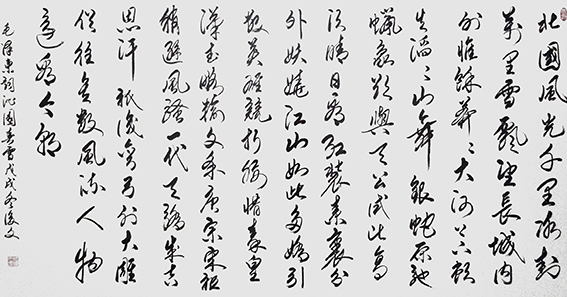 北國風光千里冰封
萬里雪飄望長城內
外惟餘莽〻大河上下頓
失滔〻山舞銀蛇原馳
蠟象欲與天公試比高
須晴日看紅裝素裹分
外妖嬈江山如此多嬌引
無數英雄競折腰惜秦皇
漢武略輸文采唐宗宋祖
稍遜風騷一代天驕成吉
思汗祇識彎弓射大雕
俱往矣數風流人物
還看今朝
毛澤東詞沁園春雪戊戌冬俊文